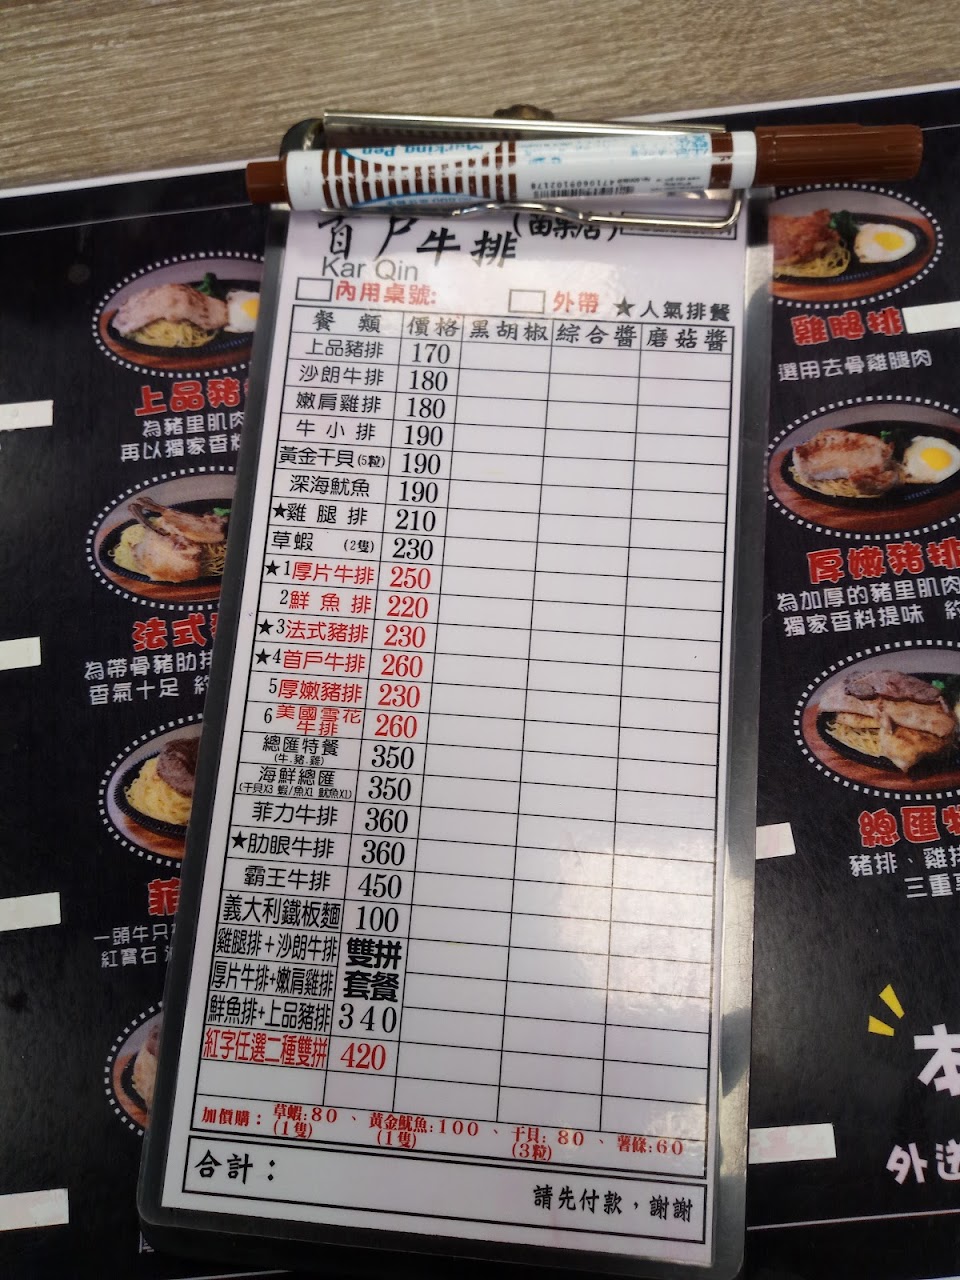 Marking Pen
4710609102178
首戶牛排(苗栗店)
Kar Qin
內用桌號: 外帶 ★人氣排餐
餐類 價格 黑胡椒 綜合醬 磨菇醬
上品豬排 170
沙朗牛排 180
嫩肩雞排 180
牛小排 190
黃金干貝(5粒) 190
深海魷魚 190
★雞腿排 210
草蝦 (2隻) 230
★1厚片牛排 250
2鮮魚排 220
★3法式豬排 230
★4首戶牛排 260
5厚嫩豬排 230
6美國雪花牛排 260
總匯特餐 350
(牛.豬.雞)
海鮮總匯 350
(干貝X3 蝦/魚X1 魷魚X1)
菲力牛排 360
★肋眼牛排 360
霸王牛排 450
義大利鐵板麵 100
雞腿排+沙朗牛排 雙拼
厚片牛排+嫩肩雞排 套餐
鮮魚排+上品豬排 340
紅字任選二種雙拼 420
加價購：草蝦:80、黃金魷魚:100、干貝:80、薯條:60
(1隻) (1隻) (3粒)
合計：
請先付款，謝謝
上品豬
為豬里肌肉
再以獨家香料
法式
為帶骨豬肋排
香氣十足 約
菲
一頭牛只
紅寶石
雞腿排
選用去骨雞腿肉
厚嫩豬排
為加厚的豬里肌肉
獨家香料提味 約
總匯特
豬排、雞排
三重
本
外送